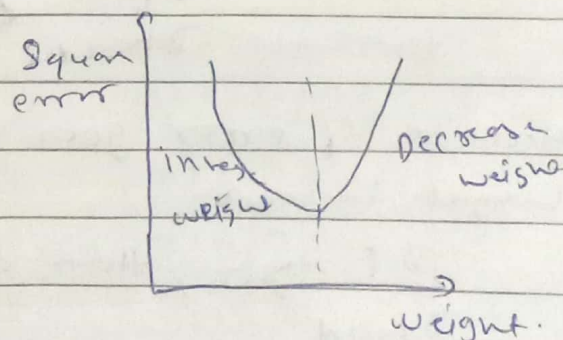 Square
error
incre.
weight
Decrease
weight
weight.